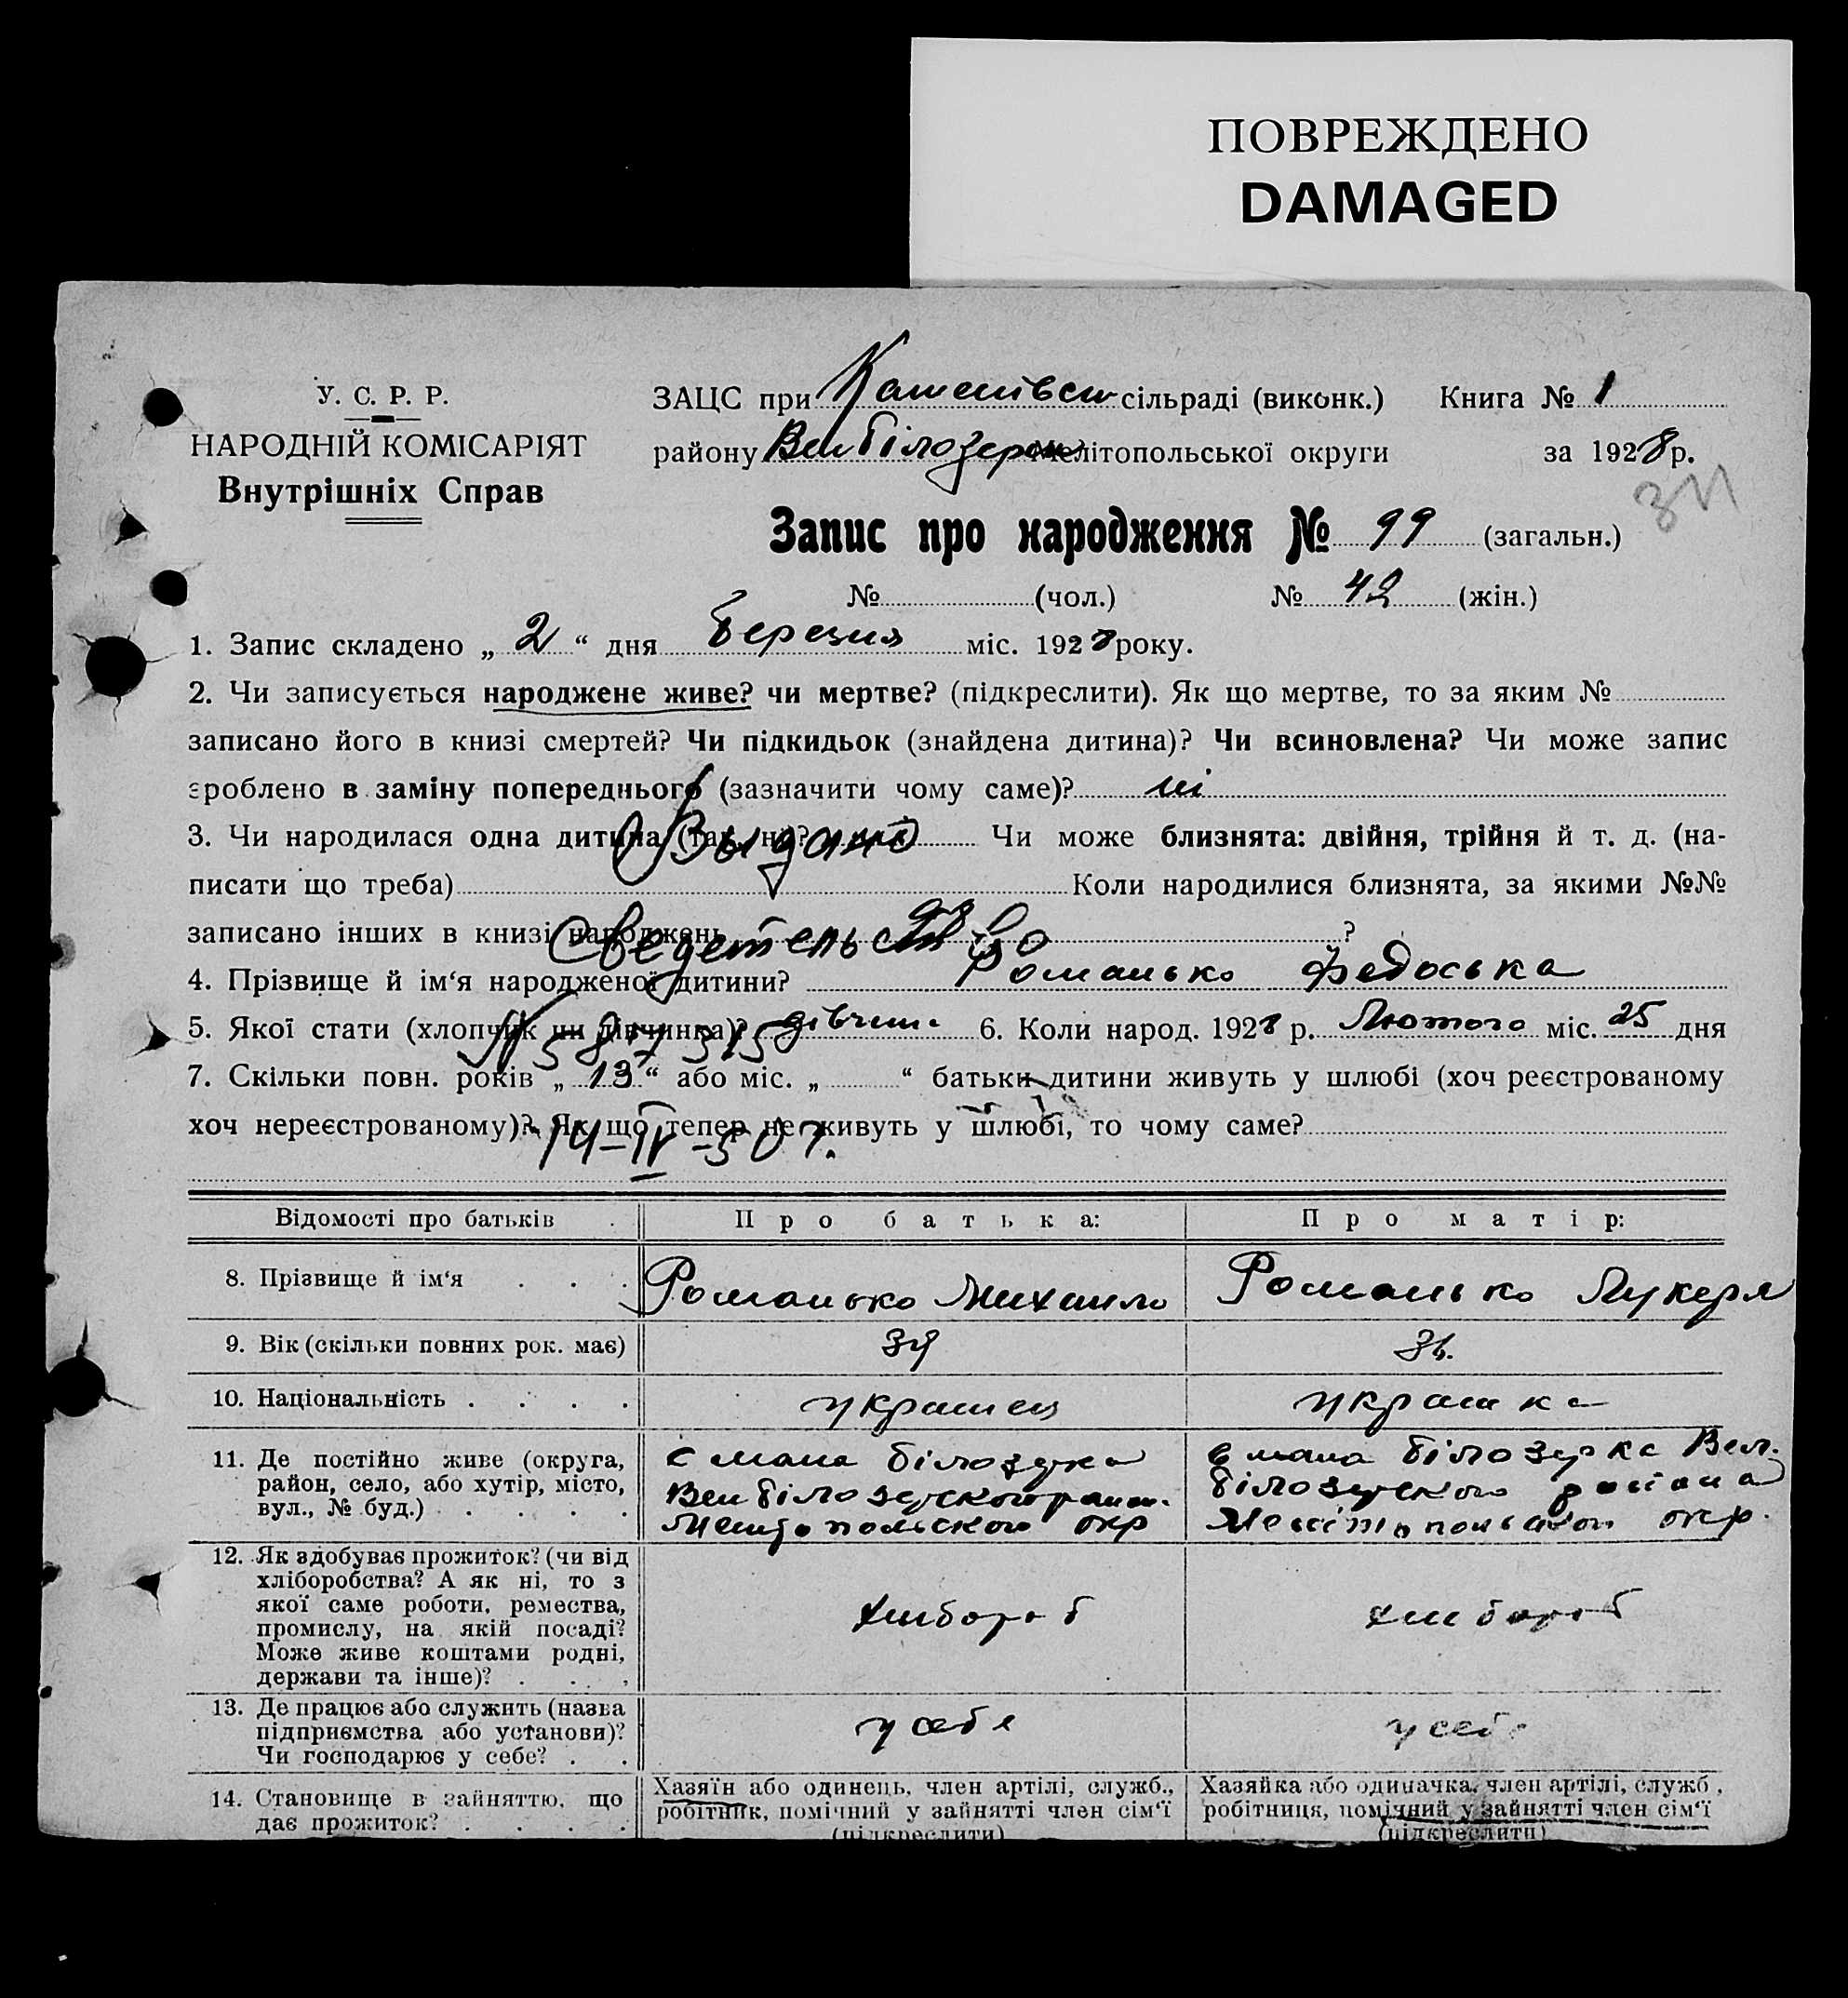 ПОВРЕЖДЕНО
DAMAGED
У. С. Р. Р.
НАРОДНІЙ КОМІСАРІЯТ
Внутрішніх Справ
ЗАЦС при сільраді (виконк.) Книга № 1
району Вел Білозерск Мелітопольської округи за 1928 р.
ЗП
Запис про народження № 99 (загальн.)
№ (чол.) № 42 (жін.)
1. Запис складено „ 2 “ дня Березня міс. 1928 року.
2. Чи записується народжене живе? чи мертве? (підкреслити). Як що мертве, то за яким №
записано його в книзі смертей? Чи підкидьок (знайдена дитина)? Чи всиновлена? Чи може запис
зроблено в заміну попереднього (зазначити чому саме)? ні
3. Чи народилася одна дитина (так, ні)? Чи може близнята: двійня, трійня й т. д. (на-
Выдано
писати що треба) Коли народилися близнята, за якими №№
записано інших в книзі народжень ?
Сведетельство
4. Прізвище й ім‘я народженої дитини? Романько Федоська
5. Якої стати (хлопчик чи дівчинка)? дівчин. 6. Коли народ. 1928 р. Лютого міс. 25 дня
7. Скільки повн. років „ 13 “ або міс. „ “ батьки дитини живуть у шлюбі (хоч реєстрованому
хоч нереєстрованому)? Як що тепер не живуть у шлюбі, то чому саме?
14-IV-50 г.
Відомості про батьків Про батька: Про матір:
8. Прізвище й ім‘я Романько Михаило Романько Лукеря
9. Вік (скільки повних рок. має)
10. Національність украинец украинка
11. Де постійно живе (округа,
район, село, або хутір, місто,
вул., № буд.)
с мала Білозерка
Вел Білозерского район.
Мелитопольской окр
с мала Білозерка Вел.
Білозерского района
Мелітопольской окр.
12. Як здобуває прожиток? (чи від
хліборобства? А як ні, то з
якої саме роботи, ремества,
промислу, на якій посаді?
Може живе коштами родні,
держави та інше)?
хлібороб хлібороб
13. Де працює або служить (назва
підприємства або установи)?
Чи господарює у себе?
у себе у себе
14. Становище в зайняттю, що
дає прожиток?
Хазяїн або одинець, член артілі, служб.,
робітник, помічний у зайнятті член сім‘ї
(підкреслити)
Хазяйка або одиначка, член артілі, служб.,
робітниця, помічний у зайнятті член сім‘ї
(підкреслити)